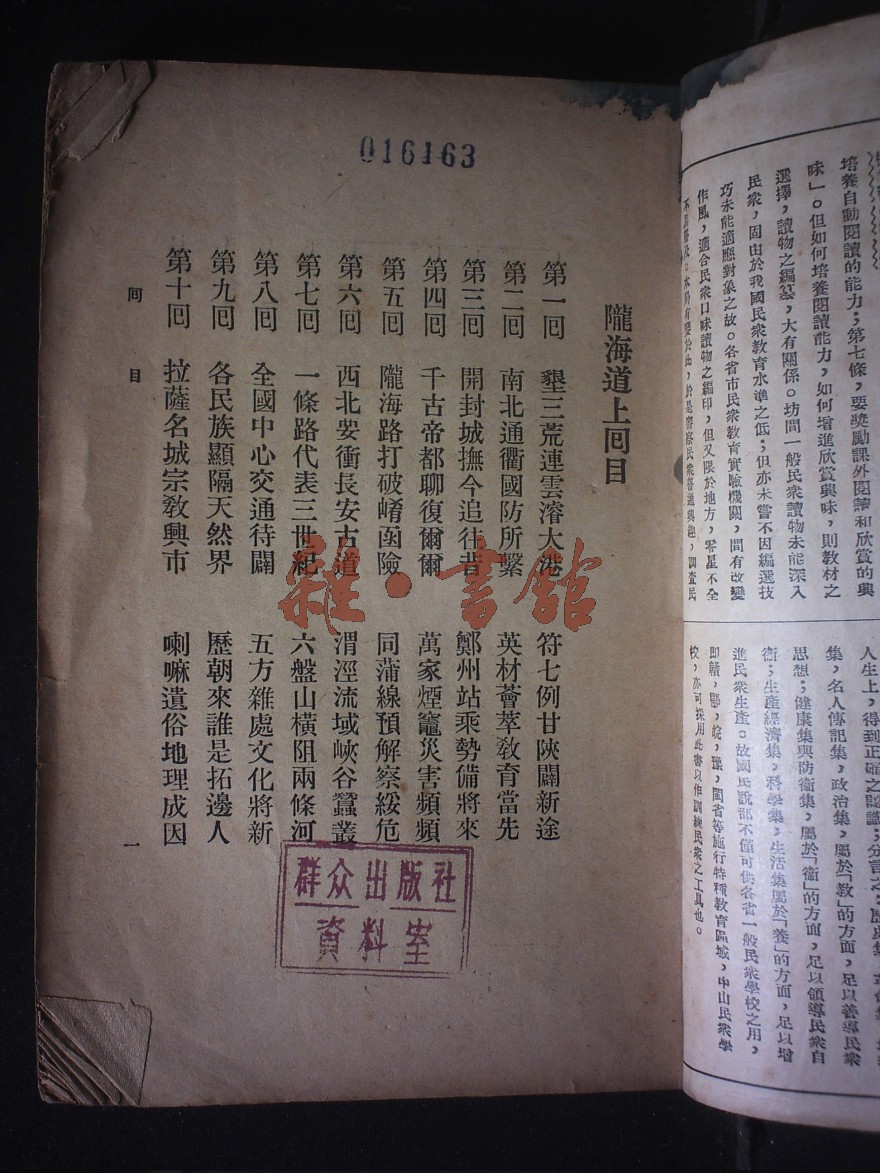 培養自動閱讀的能力;第七條,要獎勵課外閱讀和欣賞的興
味」。但如何培養閱讀能力,如何增進欣賞興味,則教材之
選擇,讀物之編纂,大有關係。坊間一般民衆讀物未能深入
民衆,固由於我國民衆教育水準之低;但亦未嘗不因編選技
巧未能適應對象之故。各省市民衆教育實驗機關,間有改變
作風,適合民衆口味讀物之編印,但又限於地方,零星不全
本局有鑒於此,於是審察民衆普通興趣,調查民
人生上,得到正確之認識;分言之:歷史集
集,名人傳記集,政治集,屬於「教」的方面,足以善導民衆
思想;健康集與防衛集,屬於「衛」的方面,足以領導民衆自
衛;生產經濟集,科學集,生活集屬於「養」的方面,足以增
進民衆生產。故國民說部不僅可供各省一般民衆學校之用,
即贛,鄂,皖,豫,閩省等施行特種教育區域,中山民衆學
校,亦可採用此書以作訓練民衆之工具也。
016163
隴海道上囘目
第一囘 墾三荒連雲濬大港 符七例甘陝闢新途
第二囘 南北通衢國防所繫 英材薈萃敎育當先
第三囘 開封城撫今追往昔 鄭州站乘勢備將來
第四囘 千古帝都聊復爾爾 萬家煙竈災害頻頻
第五囘 隴海路打破崤函險 同蒲線預解察綏危
第六囘 西北要衝長安古道 渭涇流域峽谷蠶叢
第七囘 一條路代表三世紀 六盤山橫阻兩條河
第八囘 全國中心交通待闢 五方雜處文化將新
第九囘 各民族顯隔天然界 歷朝來誰是拓邊人
第十囘 拉薩名城宗敎興市 喇嘛遺俗地理成因
囘目 一
雜·書館
群众出版社
資料室